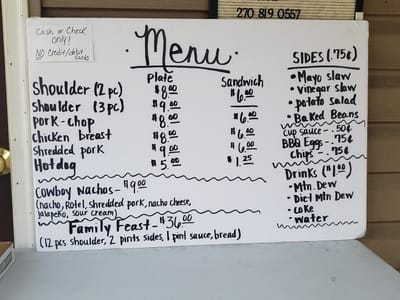 270 819 0557
Cash or Check
Only!
NO Credit/debit
cards
Menu
Plate Sandwich
Shoulder (2 pc) $8.00 $6.00
Shoulder (3 pc) $9.00
Pork-chop $8.00 $6.00
Chicken breast $8.00 $6.00
Shredded pork $9.00 $6.00
Hotdog $5.00 $1.25
Cowboy Nachos - $9.00
(nacho, Rotel, shredded pork, nacho cheese,
jalapeño, sour cream)
Family Feast - $36.00
(12 pcs shoulder, 2 pints sides, 1 pint sauce, bread)
SIDES (.75¢)
• Mayo slaw
• vinegar slaw
• potato salad
• Baked Beans
Cup sauce - .50¢
BBQ Eggs - .75¢
Chips - .75¢
Drinks ($1.00)
- Mtn. Dew
- Diet Mtn Dew
- Coke
- water